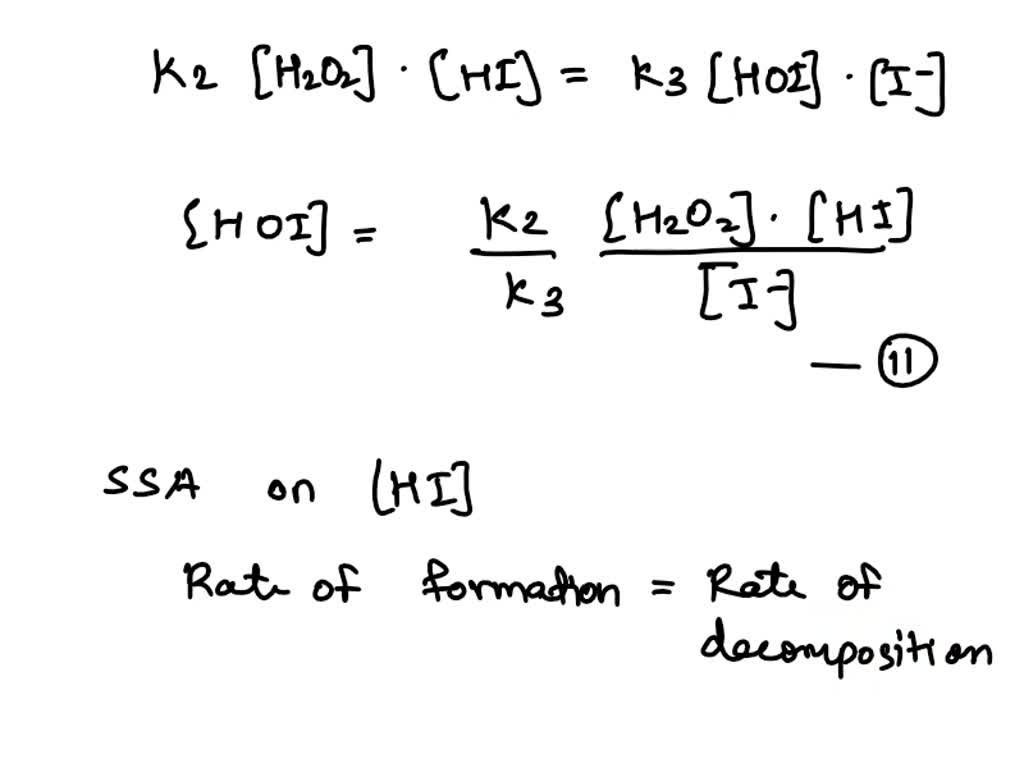 K2 [H2O2] · [HI] = K3 [HOI] · [I-]
[HOI] = K2/K3 [H2O2] · [HI]/[I-]
— 11
SSA on [HI]
Rate of formation = Rate of
decomposition